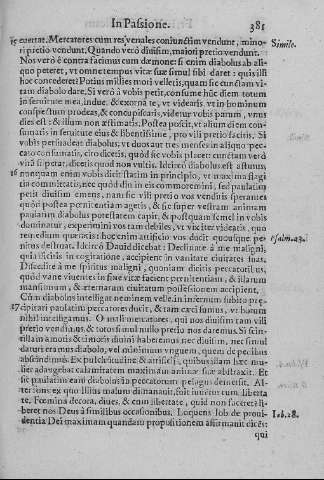 In Passione. 381
15 euertat. Mercatores cum res venales coniunctim vendunt, mino- Simile.
ri pretio vendunt. Quando verò diuisim, maiori pretio vendunt.
Nos verò è contra facimus cum dæmone: si enim diabolus ab ali-
quo peteret, vt omne tempus vitæ suæ simul sibi daret: quis illi
hoc concederet? Potius milies mori vellet is, quam sic cunctam vi-
tam diabolo dare. Si verò à vobis petit, consume hũc diem totum
in seruitute mea, indue, & exorna te, vt videaris, vt in hominum
conspectum prodeas, & concupiscaris, videtur vobis parum, vnus
dies est: & illum non æstimatis. Postea poscit, vt alium diem con-
sumatis in seruitute eius & libentissime, pro vili pretio facitis. Si
vobis persuadeat diabolus, vt duos aut tres menses in aliquo pec-
cato consumatis, cito dicetis, quòd sic vobis placet: cunctam verò
vitã si petat, diceris quòd non vultis. Idcircò diabolus est astutus,
16 nunquam enim vobis dicit statim in principio, vt maxima flagi
tia committatis, nec quòd diu in eis commoremini, sed paulatim
petit diuisim emens, nam sic vili pretio vos vendistis sperantes
quòd postea pœnitentiam agetis, & sic super vestram animam
paulatim diabolus potestatem capit, & postquam semel in vobis
dominatur, experimini vos tam debiles, vt vix iter videatis, quo
remedium quæratis: hoc enim artificio vos ducit quousque pe- Psalm.
nitus destruat. Idcircò Dauid dicebat: Declinate à me maligni,
quia iniustis in cogitatione, accipient in vanitate ciuitates suas.
Discedite à me spiritus maligni, quoniam dicitis peccatoribus,
quòd vane viuentes in fine vitæ facient pœnitentiam, & illatum
mansionum, & æternarum ciuitatum possessionem accipient.
Cùm diabolus intelligat neminem velle, in infernum subito præ-
17 cipitari paulatim peccatores ducit, & tam cæci sumus, vt horum
nihil intelligamus. O amici mercatores, qui nos diuisim tam vili
pretio vendimus, & totos simul nullo pretio nos daremus. Si scin-
tillam amoris & timoris diuini haberemus nec diuisim, nec simul
daturi eramus diabolo, vel minimum vnguem, quem de pedibus
abscindimus. Ex pulchritudine & artificiis, quibus illam hæc mu-
lier adaugebat calamitatem maximam animæ suæ abstraxit. Et
sic paulatim eam diabolus in peccatorum pelagus demersit. Al-
terius ex quo illius malum dimanauit, fuit iuuenta cum liberta
te. Fœmina decora, diues, & cum libertate, quid non faceret? li-
beret nos Deus à similibus occasionibus. Loquens Iob de proui- Iob. 28.
dentia Dei maximam quandam propositionem affirmauit dicẽs:
qui